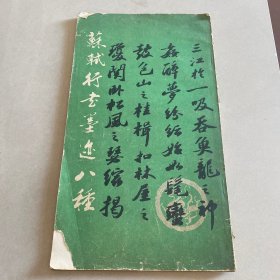 三江於一吸吞魚龍之神
姦醉夢紛紜始如髦蠻
鼓包山之桂楫扣林屋之
瓊關臥松風之瑟縮揭
蘇軾行書墨迹八種